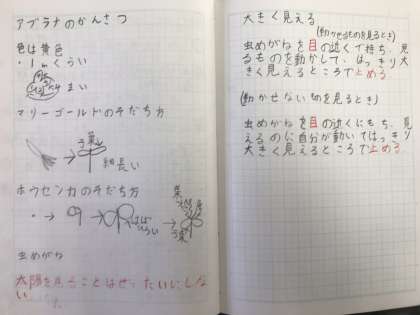 アブラナのかんさつ
色は黄色
・1mくらい
まい
マリーゴールドのそだち方
子葉
細長い
ホウセンカのそだち方
葉
子葉
虫めがね
太陽を見ることはぜったいにしな
い
大きく見える
(動かせるものを見るとき)
虫めがねを目の近くで持ち、見
るものを動かして、はっきり大
きく見えるところで止める
(動かせないものを見るとき)
虫めがねを目の近くにもち、見
えるのに自分が動いてはっきり
大きく見えるところで止める